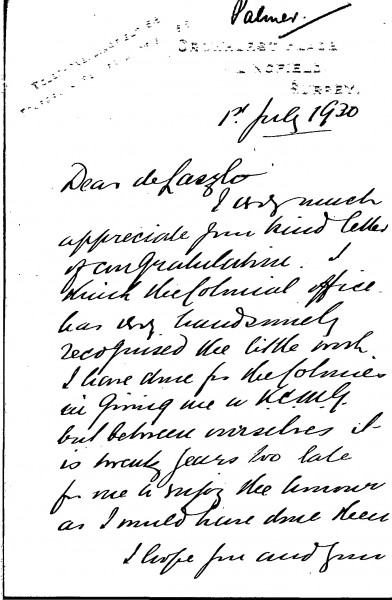 Palmer.
CROWHURST PLACE
LINGFIELD
SURREY.
1st July 1930
Dear de Laszlo
I very much
appreciate your kind letter
of congratulation. I
think the Colonial office
has very handsomely
recognised the little work
I have done for the Colonies
in giving me a K.C.M.G.
but between ourselves it
is twenty years too late
for me to enjoy the honour
as I would have done then
I hope you and your